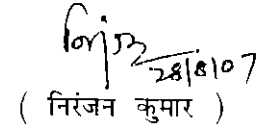 28/8/07
( निरंजन कुमार )